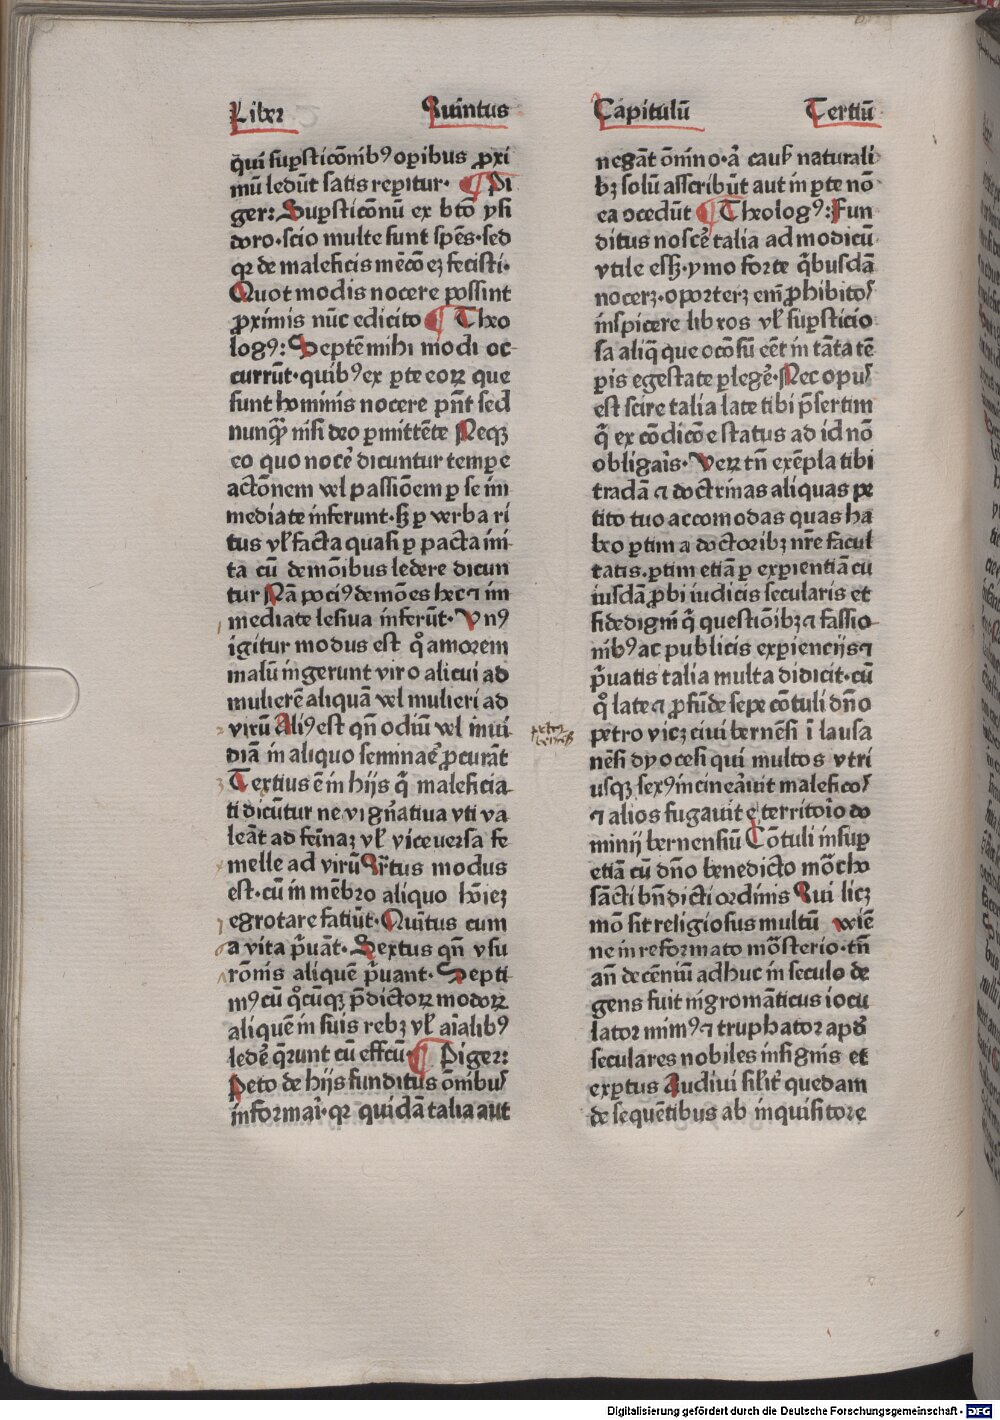 Liber Quintus
Capitulū Tertiū
q̄ui suꝑsticōnibꝰ oꝑibus ꝓxi
mū ledūt satis reꝑitur· ¶ Pi
ger: Suꝑsticōnū ex btō ysi
doro·scio multe sunt spēs·sed
qꝛ de maleficis mēcōeꝫ fecisti·
Quot modis nocere possint
ꝓximis nūc edicito ¶ Theo
logꝰ: Septē mihi modi oc-
currūt·quibꝰ ex ꝑte eoꝝ que
sunt hominis nocere pn̄t sed
nunqȝ nisi deo ꝑmittēte Neqꝫ
eo quo nocē dicuntur temꝑe
actōnem vel passiōem ꝑ se im
mediate inferunt·sꝫ ꝑ verba ri
tus vl̓ facta quasi ꝑ pacta ini-
ta cū demōibus ledere dicun
tur Nā pociꝰ demōes hec ⁊ im
mediate lesiua inferūt· Vnꝰ
igitur modus est qͦ amorem
malū ingerunt viro alicui ad
mulierē aliquā vel mulieri ad
virū Aliꝰ est qn̄ odiū vel inui
diā in aliquo seminaē ꝓcurāt
Tertius ē in hijs q̄ maleficia-
ti dicūtur ne vi gn̄atiua vti va
leāt ad feīnaꝫ vl̓ viceuersa fe
melle ad virū Qr̄tus modus
est·cū in mēbro aliquo hōīeꝫ
egrotare faciūt· Quintus cum
a vita p̄uāt· Sextus qn̄ vsu
rōnis aliquē p̄uant· Septi-
mꝰ cū qͦcūqꝫ p̄dictoꝝ modoꝝ
aliquē in suis rebꝫ vl̓ aīalibꝰ
ledē q̄runt cū effcū ¶ Piger:
Peto de hijs funditus ōnibus
informaī·qꝛ quidā talia aut
negāt ōnino·ā caus̄ naturali
bꝫ solū asscribūt aut in ꝑte nō
ea ↄcedūt ¶ Theologꝰ: Fun
ditus noscē talia ad modicū
vtile esꝫ·ymo forte q̄busdā
nocerꝫ·oporterꝫ em̄ ꝓhibitos
inspicere libros vl̓ suꝑsticio
sa aliq̄ que ↄcōsū eēt in tāta tē
ꝑis egestate ꝑlegē· Nec opus
est scire talia late tibi p̄sertim
q̄ ex cōdicōe status ad id nō
obligaīs· Veꝝ tn̄ exēpla tibi
tradā ⁊ doctrinas aliquas pe
tito tuo accomodas quas ha
beo ꝑtim a doctoribꝫ nr̄e facul
tatis·ꝑtim etiā ꝑ exꝑientiā cu
iusdā ꝓbi iudicis secularis et
fidedigni q̄ questiōibꝫ ⁊ fassio-
nibꝰ ac publicis exꝑiencijs ⁊
p̄uatis talia multa didicit·cū
qͦ late ⁊ ꝓfūde sepe cōtuli dn̄o
petro vicꝫ ciui bernēsi ī lausa
nēsi dyocesi qui multos vtri
usqꝫ sexꝰ incineāuit maleficos
⁊ alios fugauit e territorīo do
minij bernensiū Cōtuli insuꝑ
etiā cū dn̄o benedicto mōcho
sācti bn̄dicti ordinis Qui licꝫ
mō sit religiosus multū wiē
ne in reformato mōsterio·tn̄
an̄ decēniū adhuc in seculo de
gens fuit nigromāticus iocu
lator mimꝰ ⁊ truphator apd̓
seculares nobiles insignis et
exꝑtus Audiui silit̓ quedam
de sequētibus ab inquisitore
Digitalisierung gefördert durch die Deutsche Forschungsgemeinschaft - DFG